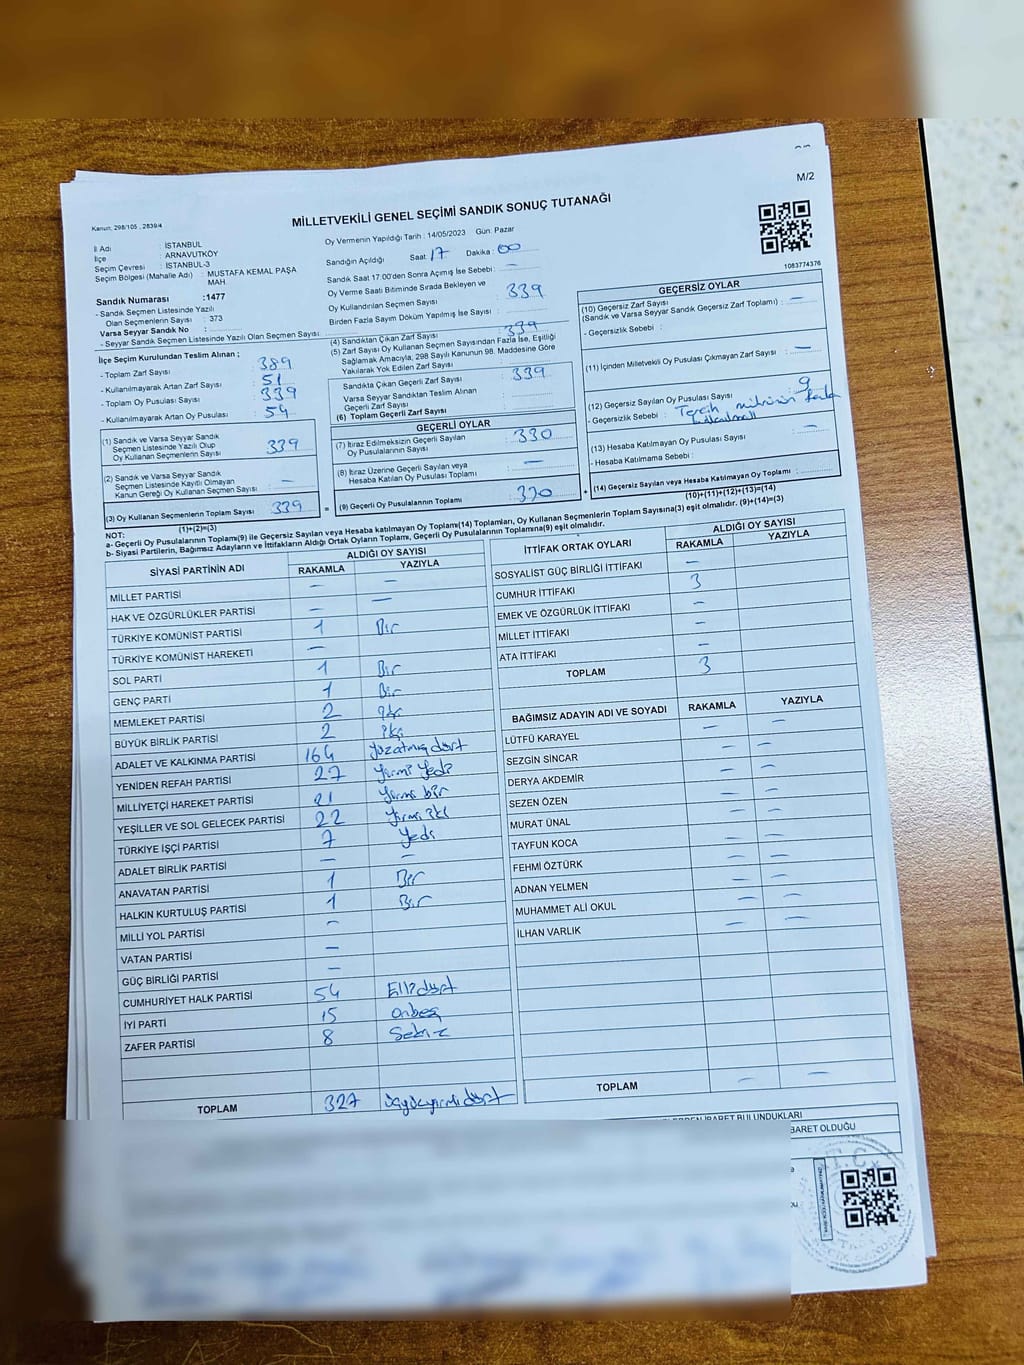 M/2
Kanun: 298/105 , 2839/4
MİLLETVEKİLİ GENEL SEÇİMİ SANDIK SONUÇ TUTANAĞI
İl Adı : İSTANBUL
İlçe : ARNAVUTKÖY
Seçim Çevresi : İSTANBUL-3
Seçim Bölgesi (Mahalle Adı) : MUSTAFA KEMAL PAŞA
MAH
Sandık Numarası :1477
- Sandık Seçmen Listesinde Yazılı
Olan Seçmenlerin Sayısı : 373
Varsa Seyyar Sandık No :
- Seyyar Sandık Seçmen Listesinde Yazılı Olan Seçmen Sayısı:
Oy Vermenin Yapıldığı Tarih : 14/05/2023 Gün: Pazar
Sandığın Açıldığı Saat : 17 Dakika : 00
Sandık Saat 17.00'den Sonra Açımış İse Sebebi : –
Oy Verme Saati Bitiminde Sırada Bekleyen ve
Oy Kullandırılan Seçmen Sayısı : 339
Birden Fazla Sayım Döküm Yapılmış İse Sayısı :
1083774376
İlçe Seçim Kurulundan Teslim Alınan ;
- Toplam Zarf Sayısı : 389
- Kullanılmayarak Artan Zarf Sayısı : 51
- Toplam Oy Pusulası Sayısı : 339
- Kullanılmayarak Artan Oy Pusulası : 54
(1) Sandık ve Varsa Seyyar Sandık
Seçmen Listesinde Yazılı Olup
Oy Kullanan Seçmenlerin Sayısı : 339
(2) Sandık ve Varsa Seyyar Sandık
Seçmen Listesinde Kayıtlı Olmayan
Kanun Gereği Oy Kullanan Seçmen Sayısı : –
(3) Oy Kullanan Seçmenlerin Toplam Sayısı : 339
(1)+(2)=(3)
(4) Sandıktan Çıkan Zarf Sayısı : 339
(5) Zarf Sayısı Oy Kullanan Seçmen Sayısından Fazla İse, Eşitliği
Sağlamak Amacıyla, 298 Sayılı Kanunun 98. Maddesine Göre
Yakılarak Yok Edilen Zarf Sayısı :
Sandıkta Çıkan Geçerli Zarf Sayısı : 339
Varsa Seyyar Sandıktan Teslim Alınan
Geçerli Zarf Sayısı :
(6) Toplam Geçerli Zarf Sayısı :
GEÇERLİ OYLAR
(7) İtiraz Edilmeksizin Geçerli Sayılan
Oy Pusulalarının Sayısı : 330
(8) İtiraz Üzerine Geçerli Sayılan veya
Hesaba Katılan Oy Pusulası Toplamı : –
(9) Geçerli Oy Pusulalarının Toplamı : 330
GEÇERSİZ OYLAR
(10) Geçersiz Zarf Sayısı : –
(Sandık ve Varsa Seyyar Sandık Geçersiz Zarf Toplamı)
- Geçersizlik Sebebi :
(11) İçinden Milletvekili Oy Pusulası Çıkmayan Zarf Sayısı : –
(12) Geçersiz Sayılan Oy Pusulası Sayısı : 9
- Geçersizlik Sebebi : Tercih mührünün fazla
(13) Hesaba Katılmayan Oy Pusulası Sayısı : –
- Hesaba Katılmama Sebebi :
(14) Geçersiz Sayılan veya Hesaba Katılmayan Oy Toplamı :
(10)+(11)+(12)+(13)=(14)
NOT:
a- Geçerli Oy Pusulalarının Toplamı(9) ile Geçersiz Sayılan veya Hesaba katılmayan Oy Toplamı(14) Toplamları, Oy Kullanan Seçmenlerin Toplam Sayısına(3) eşit olmalıdır. (9)+(14)=(3)
b- Siyasi Partilerin, Bağımsız Adayların ve İttifakların Aldığı Ortak Oyların Toplamı, Geçerli Oy Pusulalarının Toplamına(9) eşit olmalıdır.
SİYASİ PARTİNİN ADI ALDIĞI OY SAYISI
RAKAMLA YAZIYLA
MİLLET PARTİSİ – –
HAK VE ÖZGÜRLÜKLER PARTİSİ – –
TÜRKİYE KOMÜNİST PARTİSİ 1 Bir
TÜRKİYE KOMÜNİST HAREKETİ –
SOL PARTİ 1 Bir
GENÇ PARTİ 1 Bir
MEMLEKET PARTİSİ 2 iki
BÜYÜK BİRLİK PARTİSİ 2 iki
ADALET VE KALKINMA PARTİSİ 164 yüzatmışdört
YENİDEN REFAH PARTİSİ 27 yirmi yedi
MİLLİYETÇİ HAREKET PARTİSİ 21 yirmi bir
YEŞİLLER VE SOL GELECEK PARTİSİ 22 yirmi iki
TÜRKİYE İŞÇİ PARTİSİ 7 yedi
ADALET BİRLİK PARTİSİ – –
ANAVATAN PARTİSİ 1 Bir
HALKIN KURTULUŞ PARTİSİ 1 Bir
MİLLİ YOL PARTİSİ –
VATAN PARTİSİ –
GÜÇ BİRLİĞİ PARTİSİ –
CUMHURİYET HALK PARTİSİ 54 Ellidört
İYİ PARTİ 15 onbeş
ZAFER PARTİSİ 8 Sekiz
TOPLAM 327 üçyüzyirmidört
İTTİFAK ORTAK OYLARI ALDIĞI OY SAYISI
RAKAMLA YAZIYLA
SOSYALİST GÜÇ BİRLİĞİ İTTİFAKI –
CUMHUR İTTİFAKI 3
EMEK VE ÖZGÜRLÜK İTTİFAKI –
MİLLET İTTİFAKI –
ATA İTTİFAKI –
TOPLAM 3
BAĞIMSIZ ADAYIN ADI VE SOYADI RAKAMLA YAZIYLA
LÜTFÜ KARAYEL – –
SEZGİN SİNCAR – –
DERYA AKDEMİR – –
SEZEN ÖZEN – –
MURAT ÜNAL – –
TAYFUN KOCA – –
FEHMİ ÖZTÜRK – –
ADNAN YELMEN – –
MUHAMMET ALİ OKUL – –
İLHAN VARLIK – –
TOPLAM – –
İBARET BULUNDUKLARI
BARET OLDUĞU
T.C.